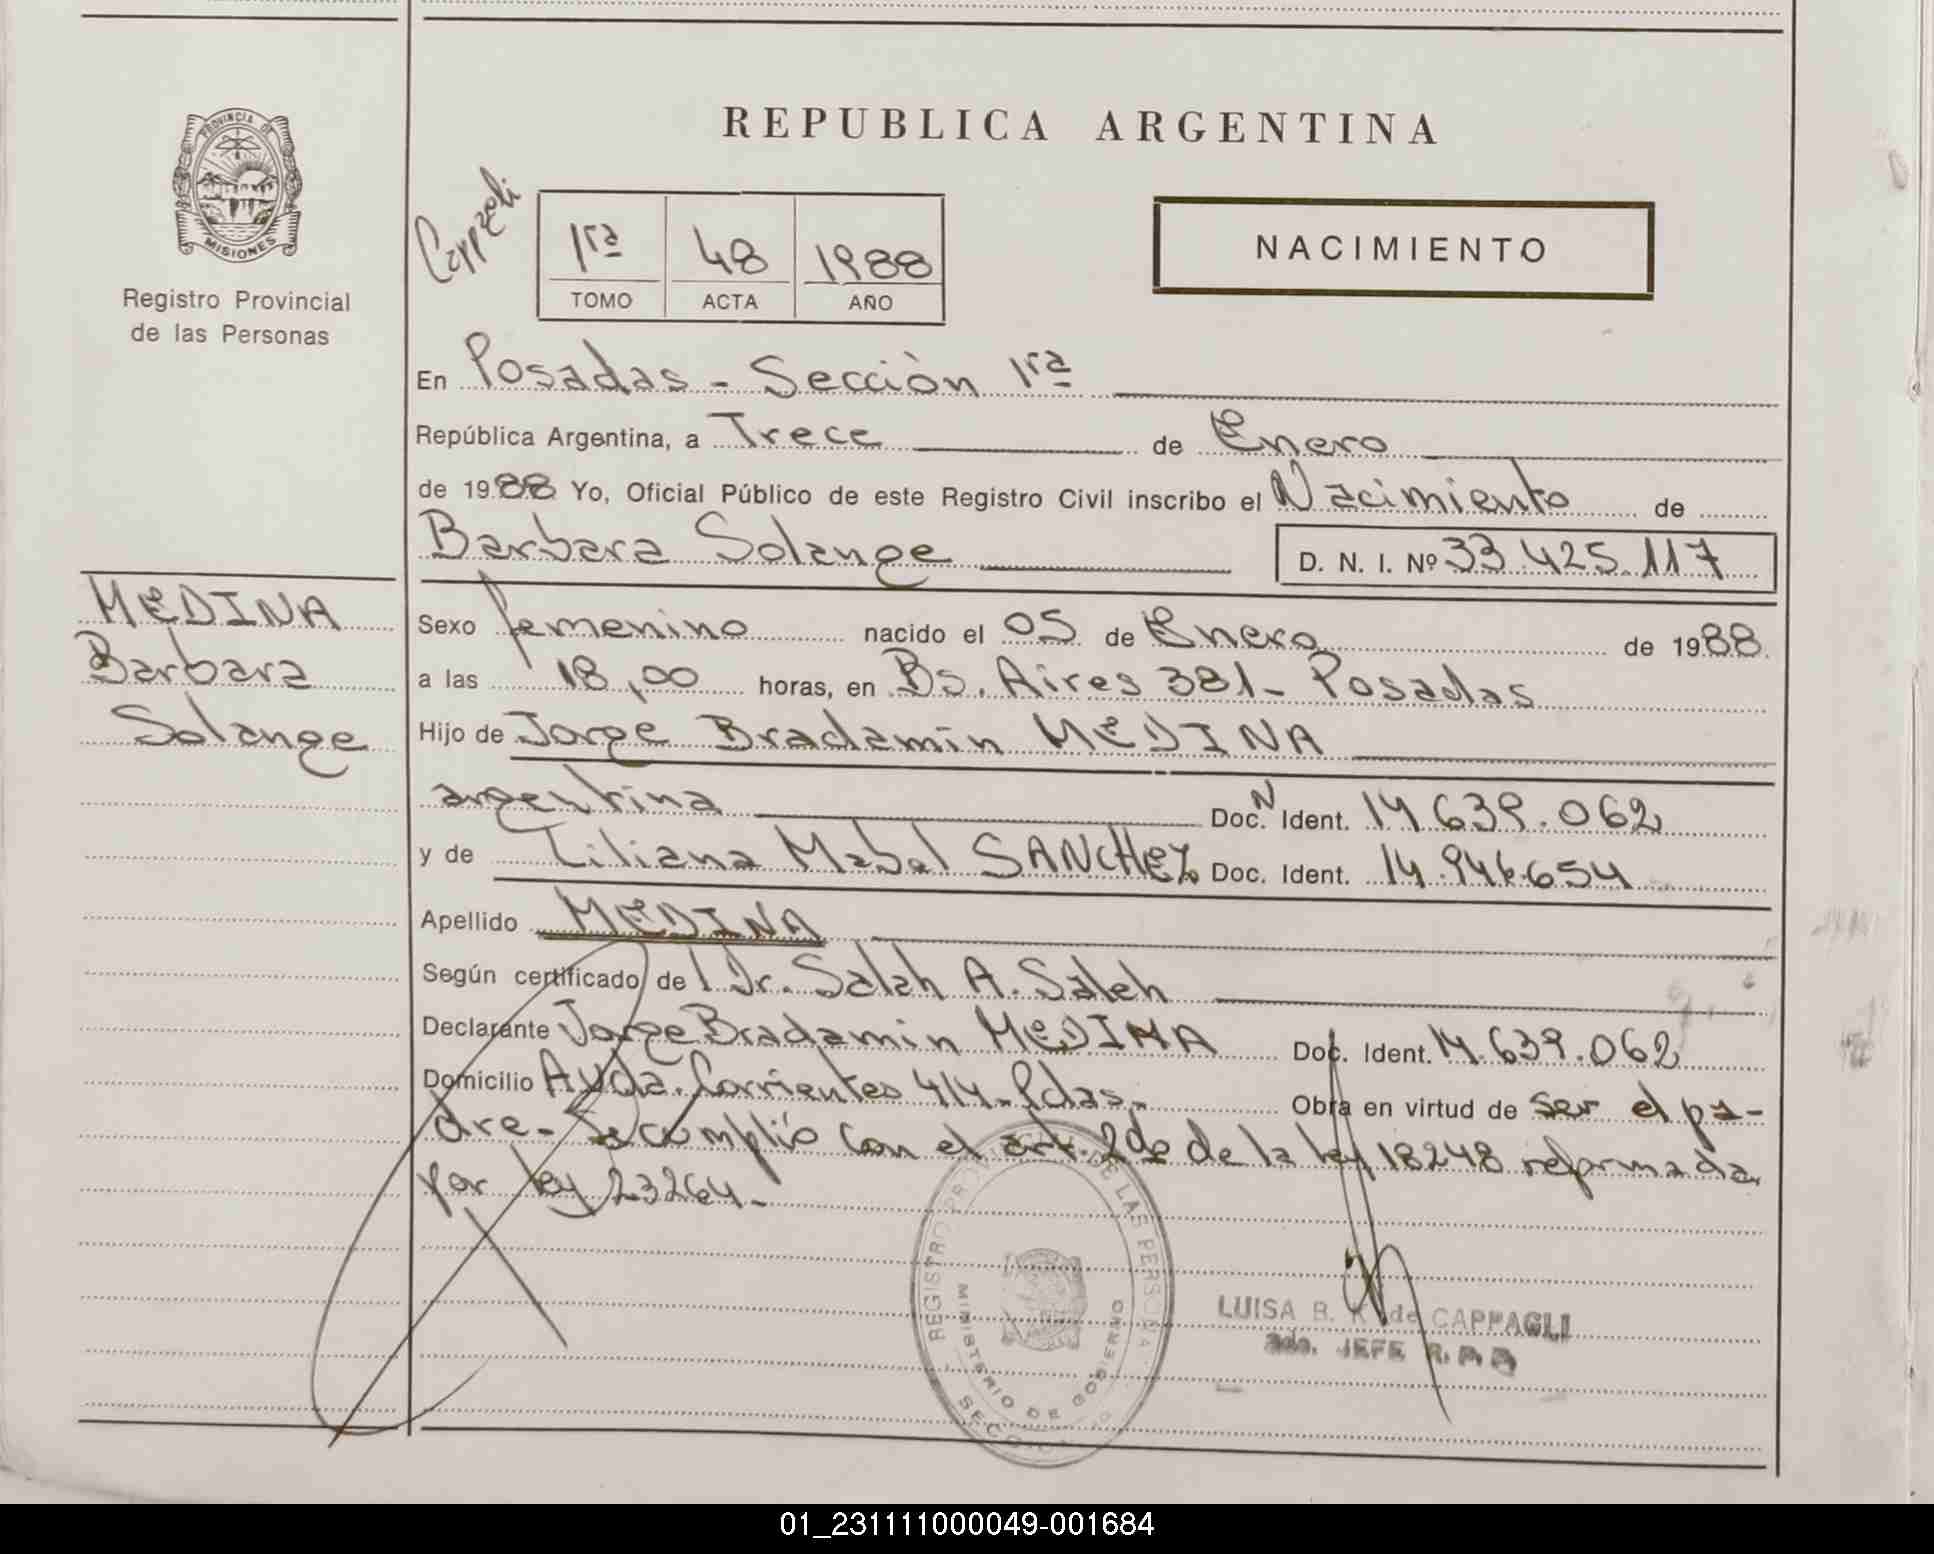 REPUBLICA ARGENTINA
PROVINCIA DE
MISIONES
Registro Provincial
de las Personas
1ra 48 1988
TOMO ACTA AÑO
NACIMIENTO
En Posadas - Sección 1ra
República Argentina, a Trece de Enero
de 1988 Yo, Oficial Público de este Registro Civil inscribo el Nacimiento de
Barbara Solange D. N. I. Nº 33.425.117
MEDINA
Barbara
Solange
Sexo femenino nacido el 05 de Enero de 1988.
a las 18,00 horas, en Bs. Aires 381- Posadas
Hijo de Jorge Bradamin MEDINA
argentina Doc. N Ident. 14.639.062
y de Liliana Mabel SANCHEZ Doc. Ident. 14.946.654
Apellido MEDINA
Según certificado de l Dr. Salah A. Saleh
Declarante Jorge Bradamin MEDINA Doc. Ident. 14.639.062
Domicilio Ayda. Corrientes 414- Pdas- Obra en virtud de ser el pa-
dre- Se cumplió con el art. 2do de la ley 18248 reformada
por ley 23264-
REGISTRO PROVINCIAL DE LAS PERSONAS
MINISTERIO DE GOBIERNO
LUISA B. K. de CAPPAGLI
JEFE R. P. P.
01_231111000049-001684